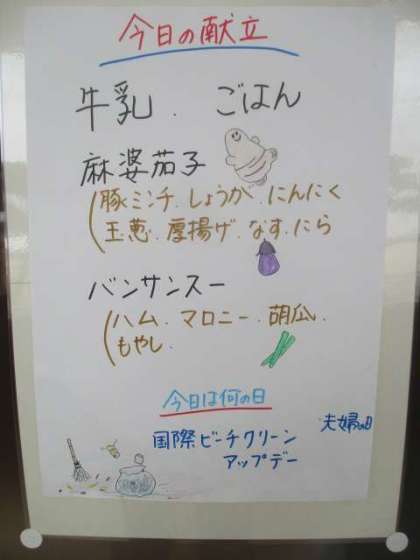 今日の献立
牛乳．ごはん
麻婆茄子
(豚ミンチ．しょうが．にんにく
玉葱．厚揚げ．なす．にら
バンサンスー
(ハム．マロニー．胡瓜．
もやし．
今日は何の日
夫婦の日
国際ビーチクリーン
アップデー